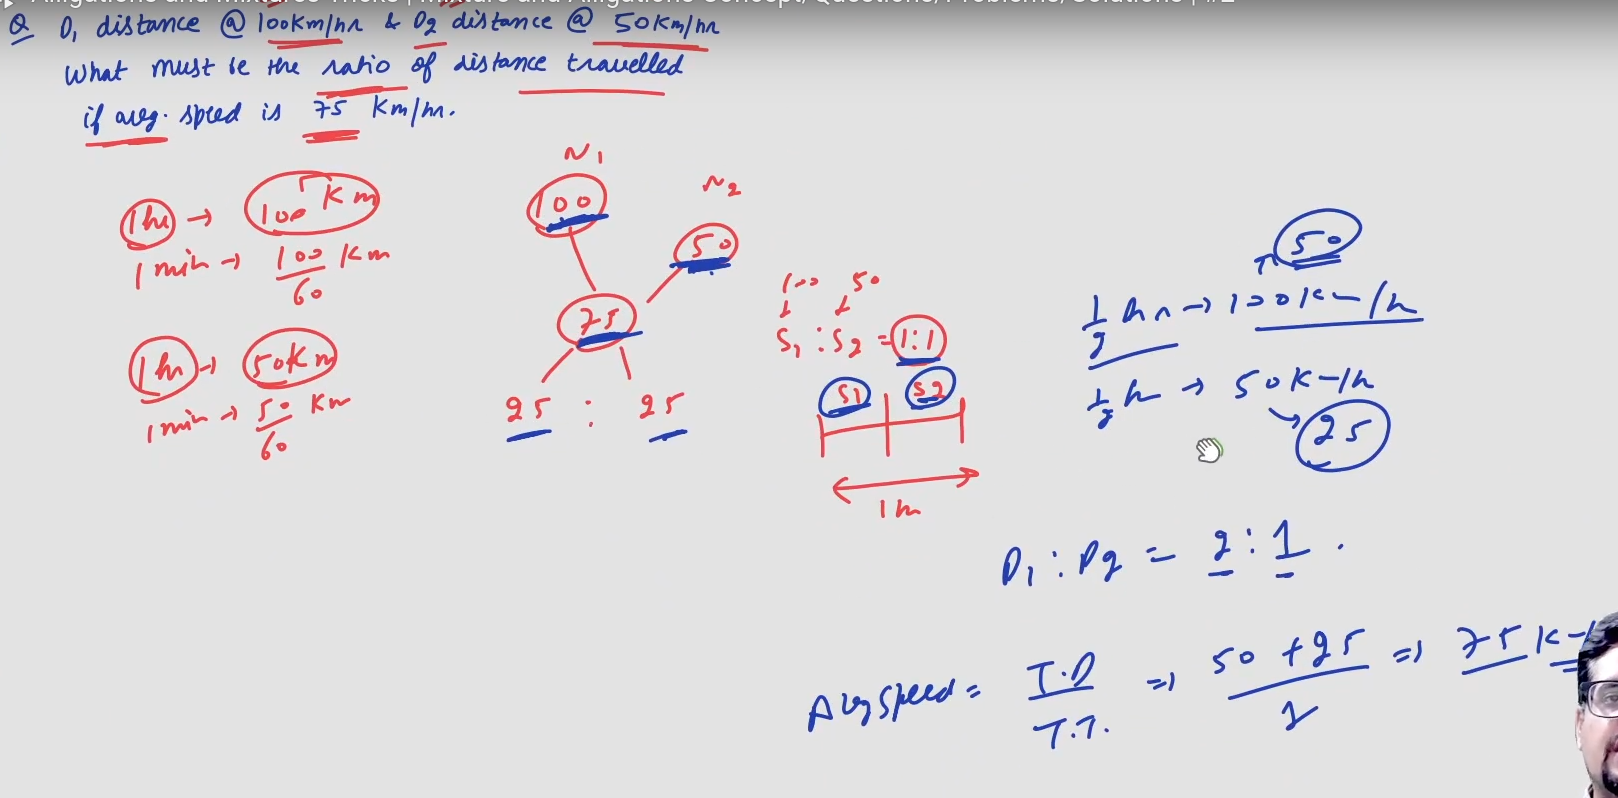 Alligations and Mixtures Tricks | Mixture and Alligations Concept/Questions/Problems/Solutions | #2
Q D1 distance @ 100km/hr & D2 distance @ 50Km/hr
What must be the ratio of distance travelled
if avg. speed is 75 Km/hr.
N1
100
N2
50
75
25 : 25
1hr → 100 Km
1 min → 100/60 Km
1hr → 50Km
1 min → 50/60 Km
100 50
↓ ↓
S1 : S2 = 1:1
S1 S2
1 hr
50
1/2 hr → 100 km/h
1/2 h → 50 K-/h
25
D1 : D2 = 2 : 1 .
Avg Speed = T.D/T.T. ⇒ 50 + 25/1 ⇒ 75 K-/